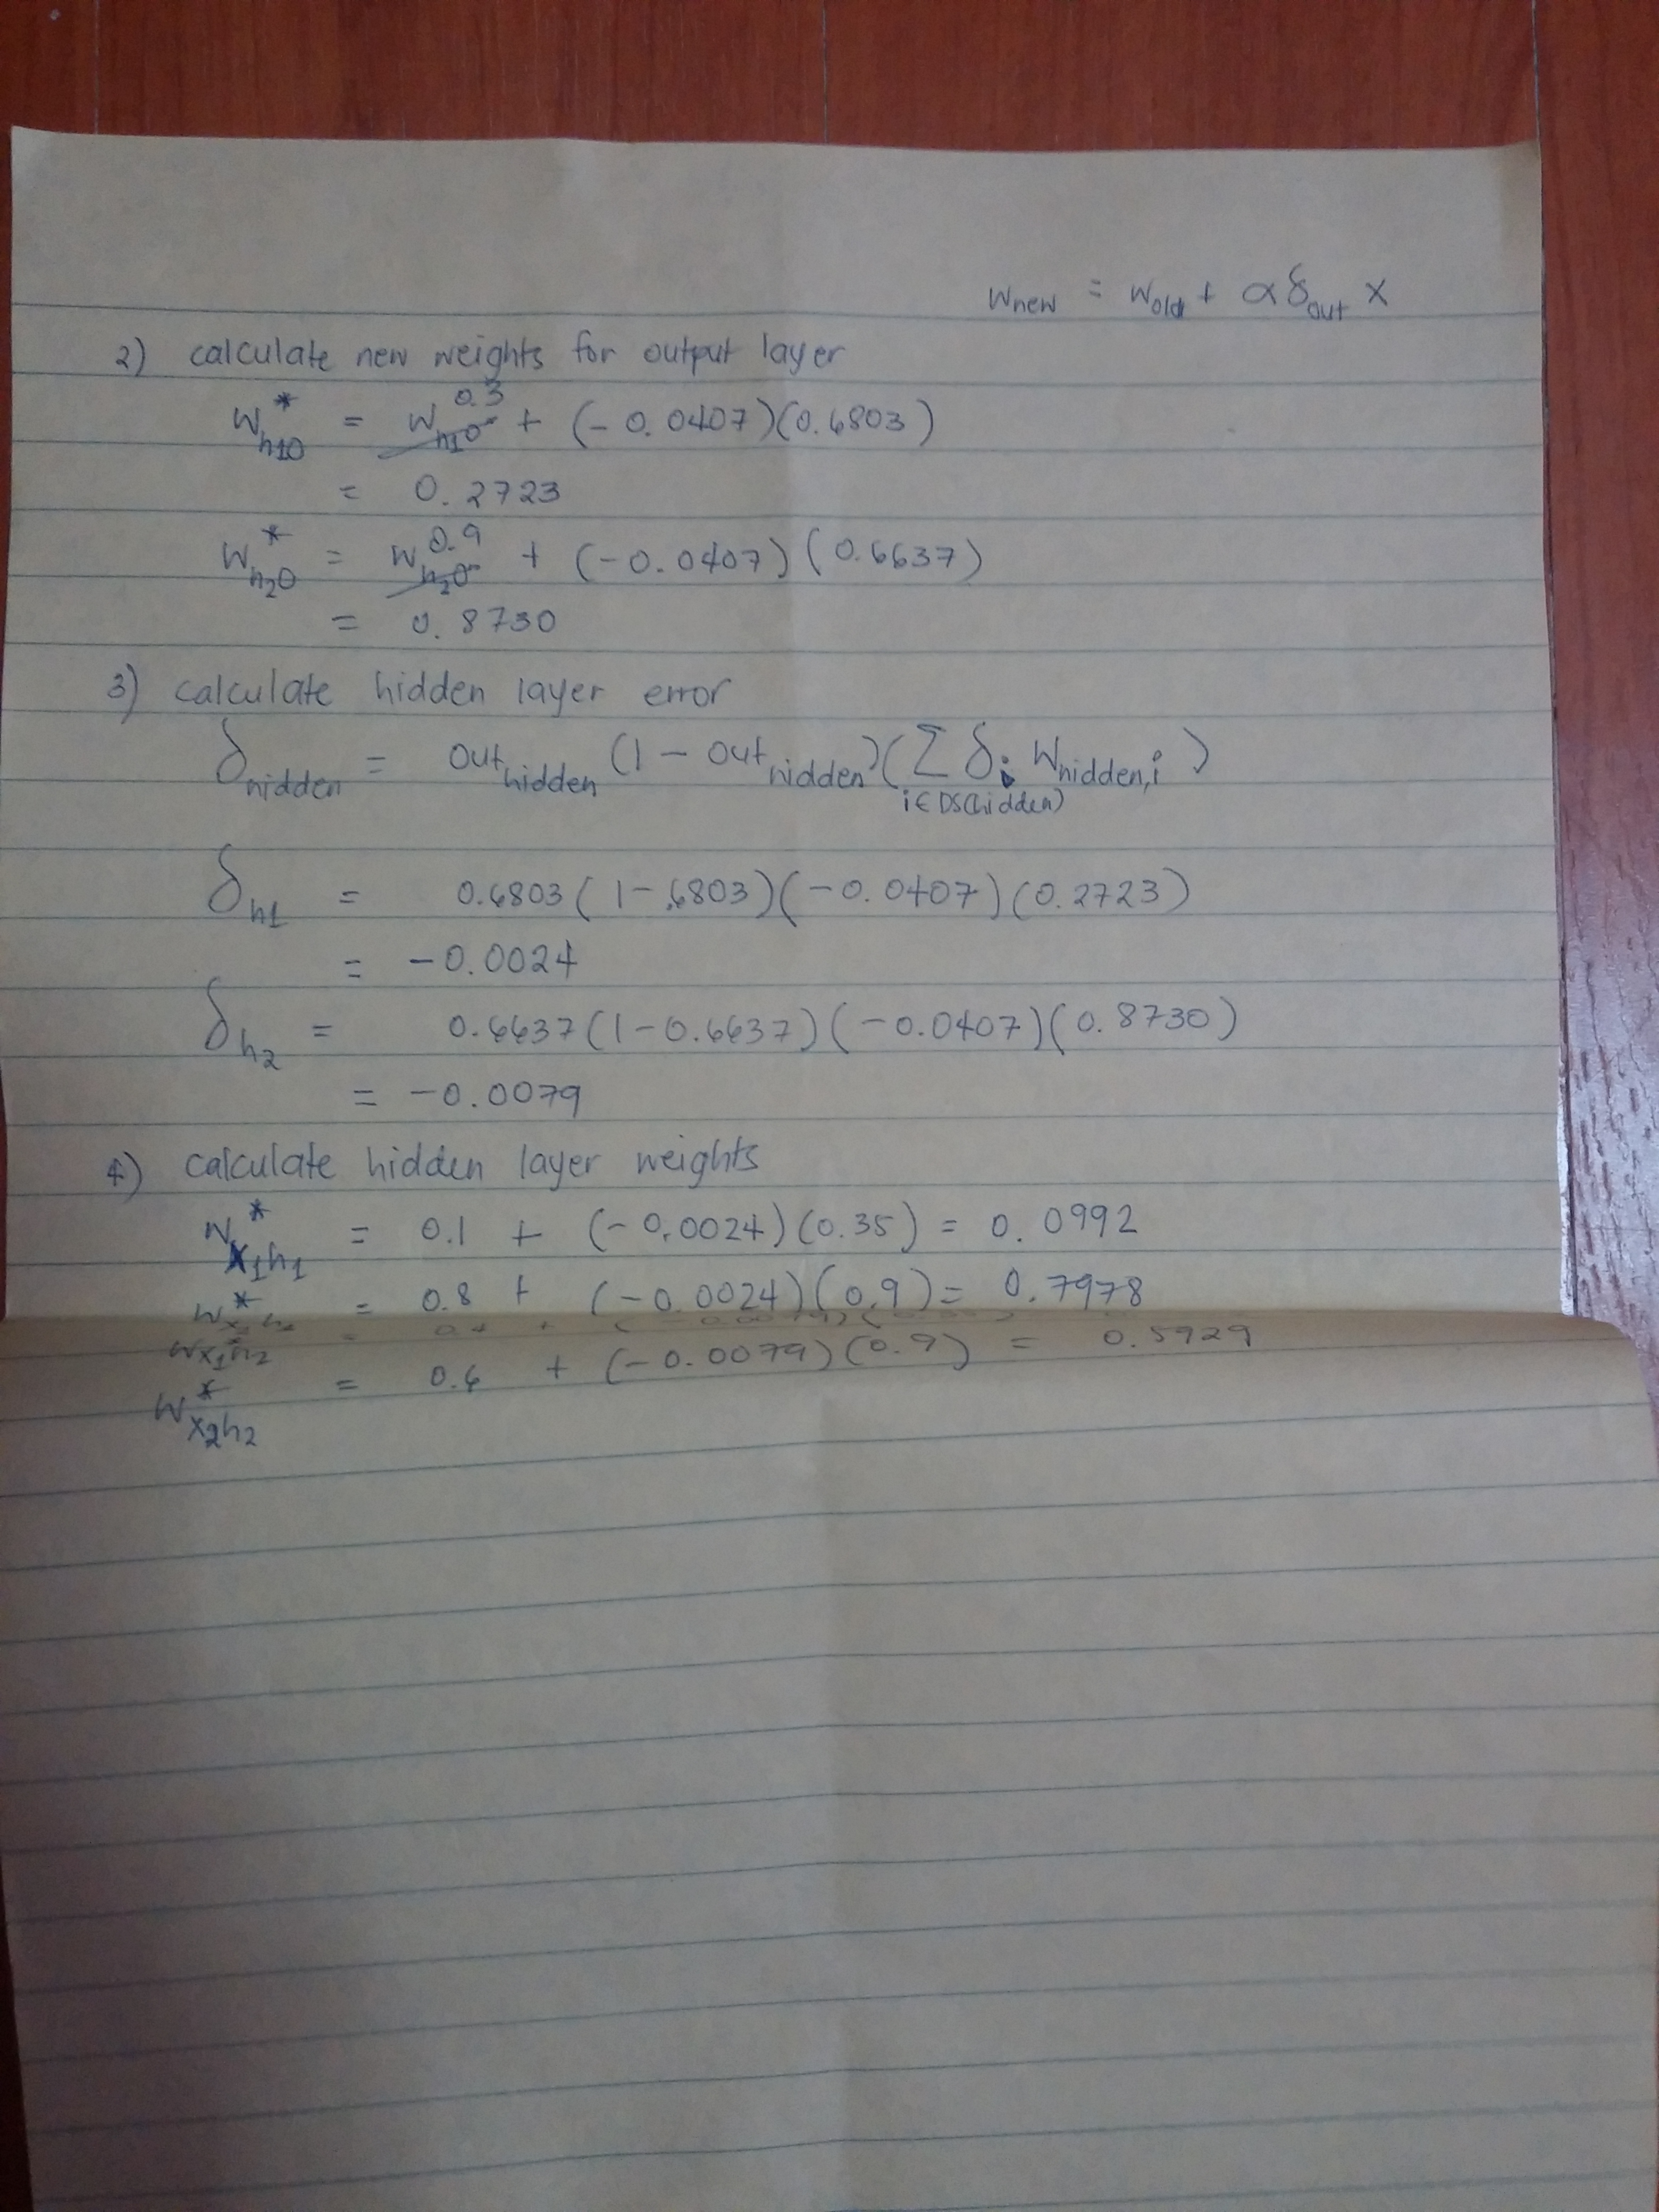 Wnew = Wold + α δout X
2) calculate new weights for output layer
W*h1O = Wh1O 0.3 + (-0.0407)(0.6803)
= 0.2723
W*h2O = Wh2O 0.9 + (-0.0407)(0.6637)
= 0.8730
3) calculate hidden layer error
δhidden = outhidden (1 - outhidden)(Σ δi Whidden,i)
i∈DS(hidden)
δh1 = 0.6803(1-.6803)(-0.0407)(0.2723)
= -0.0024
δh2 = 0.6637(1-0.6637)(-0.0407)(0.8730)
= -0.0079
4) calculate hidden layer weights
W*x1h1 = 0.1 + (-0.0024)(0.35) = 0.0992
W* = 0.8 + (-0.0024)(0.9) = 0.7978
Wx1h2 =
W*x2h2 = 0.6 + (-0.0079)(0.9) = 0.5929